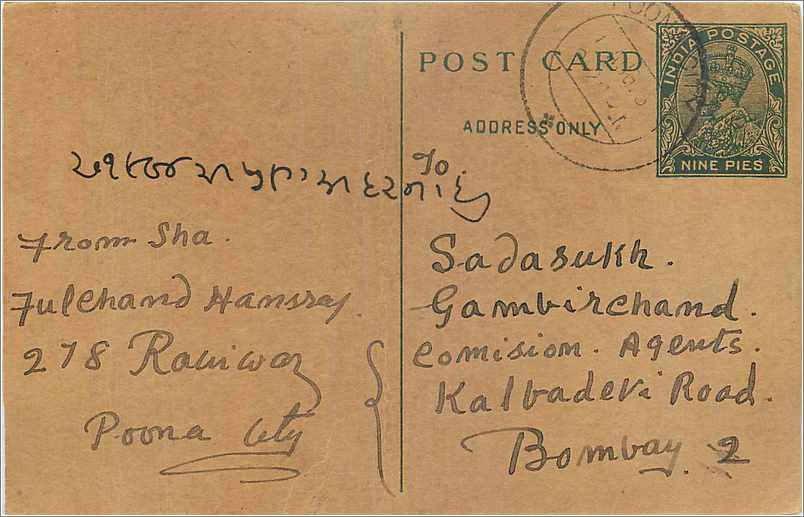 POST CARD
ADDRESS ONLY
INDIA POSTAGE
NINE PIES
POON
To.
From Sha.
Fulchand Hansraj.
278 Raviwar
Poona City
Sadasukh.
Gambirchand.
Comision. Agents.
Kalbadevi Road.
Bombay. 2